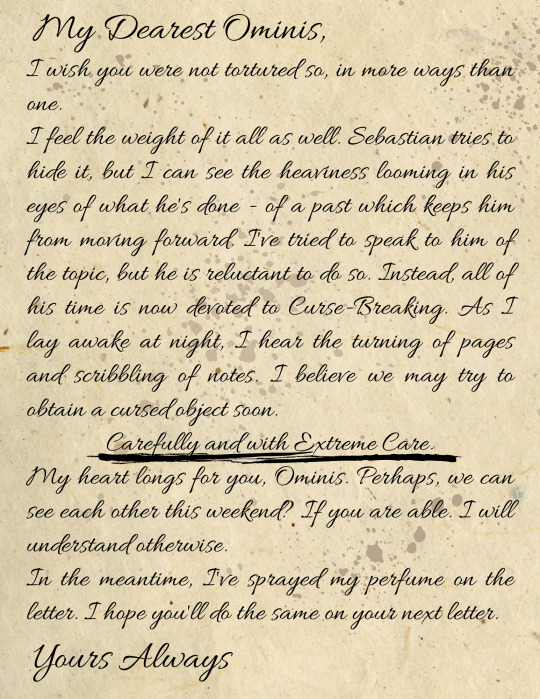 My Dearest Ominis,
I wish you were not tortured so, in more ways than
one.
I feel the weight of it all as well. Sebastian tries to
hide it, but I can see the heaviness looming in his
eyes of what he's done - of a past which keeps him
from moving forward. I've tried to speak to him of
the topic, but he is reluctant to do so. Instead, all of
his time is now devoted to Curse-Breaking. As I
lay awake at night, I hear the turning of pages
and scribbling of notes. I believe we may try to
obtain a cursed object soon.
Carefully and with Extreme Care.
My heart longs for you, Ominis. Perhaps, we can
see each other this weekend? If you are able. I will
understand otherwise.
In the meantime, I've sprayed my perfume on the
letter. I hope you'll do the same on your next letter.
Yours Always